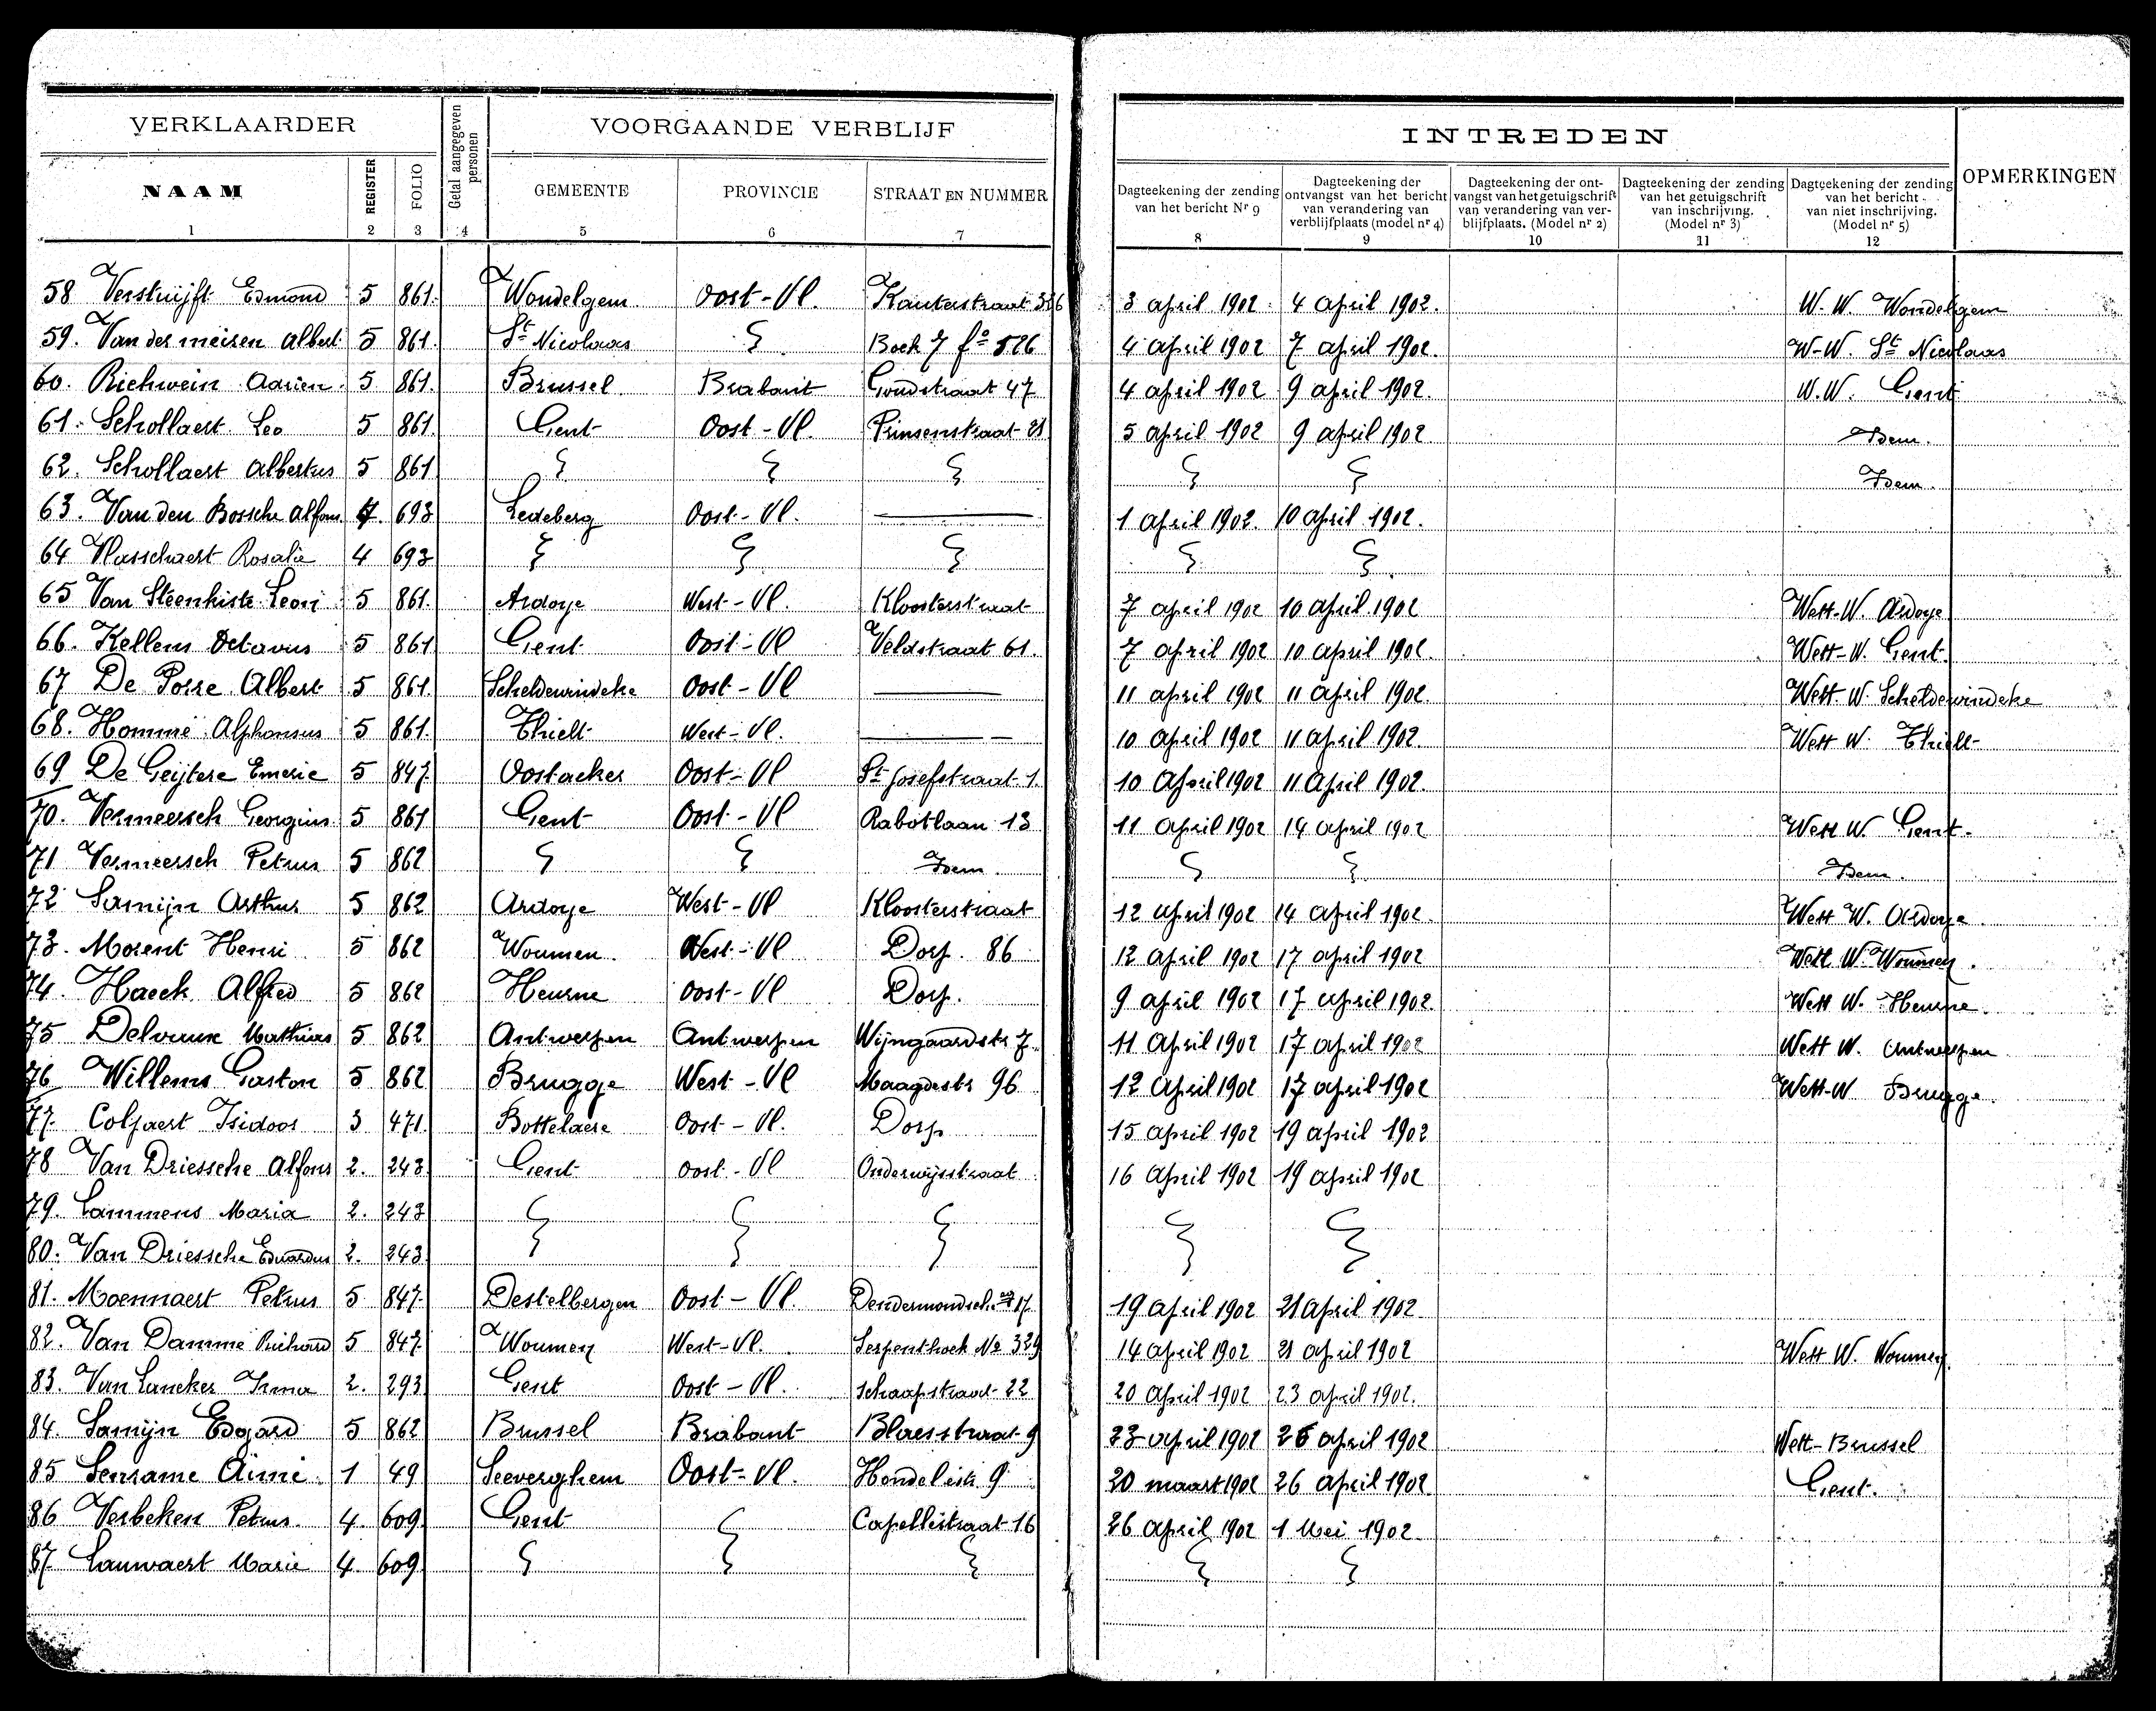 VERKLAARDER
Getal aangegeven personen
VOORGAANDE VERBLIJF
INTREDEN
OPMERKINGEN
NAAM
REGISTER
FOLIO
GEMEENTE
PROVINCIE
STRAAT EN NUMMER
Dagteekening der zending van het bericht Nr 9
Dagteekening der ontvangst van het bericht van verandering van verblijfplaats (model nr 4)
Dagteekening der ontvangst van het getuigschrift van verandering van verblijfplaats. (Model nr 2)
Dagteekening der zending van het getuigschrift van inschrijving. (Model nr 3)
Dagteekening der zending van het bericht van niet inschrijving. (Model nr 5)
1 2 3 4 5 6 7 8 9 10 11 12
58 Verstuijft Edmond 5 861. Wondelgem Oost-Vl. Kauterstraat 3 april 1902 4 april 1902. W. W. Wondelgem
59. Van der meiren Albert 5 861. St Nicolaas Boek 7 fo 526 4 april 1902 7 april 1902. W-W. St Nicolaas
60. Richwein Adrien 5 861. Brussel Brabant Goudstraat 47 4 april 1902 9 april 1902. W.W. Gent
61. Schollaert Leo 5 861. Gent Oost-Vl. Prinsenstraat 21 5 april 1902 9 april 1902 Idem.
62. Schollaert Albertus 5 861 Idem.
63. Van den Bossche Alfons 4. 693 Ledeberg Oost-Vl. 1 April 1902. 10 april 1902.
64 Vlasschaert Rosalie 4 693
65 Van Steenkiste Leon 5 861 Ardoye West-Vl. Kloosterstraat 7 april 1902 10 april 1902 Wett-W. Ardoye
66. Kellens Octavus 5 861 Gent Oost-Vl Veldstraat 61. 7 april 1902 10 april 1902. Wett-W. Gent
67 De Porre Albert 5 861 Scheldewindeke Oost-Vl 11 april 1902 11 april 1902. Wett. W. Scheldewindeke
68. Hommé Alphonsus 5 861. Thielt West-Vl. 10 april 1902 11 april 1902. Wett W. Thielt
69 De Geijtere Emerie 5 847 Oostacker Oost-Vl St Josefstraat 1. 10 April 1902 11 April 1902.
70. Vermeersch Georgius 5 861 Gent Oost-Vl Rabotlaan 13 11 april 1902 14 april 1902 Wett W. Gent.
71 Vermeersch Petrus 5 862 Idem. Idem.
72 Samijn Arthur 5 862 Ardoye West-Vl Kloosterstraat 12 april 1902 14 april 1902. Wett W. Ardoye
73. Morent Henri 5 862 Woumen. West-Vl Dorp. 86 12 april 1902 17 april 1902 Wett W. Woumen.
74. Haeck Alfred 5 862 Heurne Oost-Vl Dorp. 9 april 1902 17 april 1902. Wett W. Heurne.
75 Delvaux Mathias 5 862 Antwerpen Antwerpen Wijngaardstr 7. 11 April 1902 17 april 1902 Wett W. Antwerpen
76 Willems Gaston 5 862 Brugge West-Vl Maagdestr 96 12 April 1902 17 april 1902 Wett-W Brugge.
77. Colpaert Isidoor 3 471. Bottelaere Oost-Vl. Dorp 15 april 1902 19 april 1902
78 Van Driessche Alfons 2. 243 Gent Oost-Vl Onderwijsstraat 16 April 1902 19 april 1902
79. Lammens Maria 2. 243
80. Van Driessche Eduardus 2. 243
81. Moennaert Petrus 5 847. Destelbergen Oost-Vl. 19 april 1902 21 april 1902
82. Van Damme Richard 5 847. Woumen West-Vl. Serpenthoek No 329 14 april 1902 21 april 1902 Wett W. Woumen.
83. Van Lancker Irma 2. 293 Gent Oost-Vl. Schaapstraat 22 20 april 1902 23 april 1902.
84. Samijn Edgard 5 862 Brussel Brabant Blaesstraat 9 23 april 1902 26 april 1902 Wett-Brussel
85 Aimé 1 49 Seeverghem Oost-Vl. 9 20 maart 1902 26 April 1902 Gent.
86 Verbeken Petrus. 4. 609. Gent Capellestraat 16 26 april 1902 1 Mei 1902.
87 Lauwaert Marie 4 609